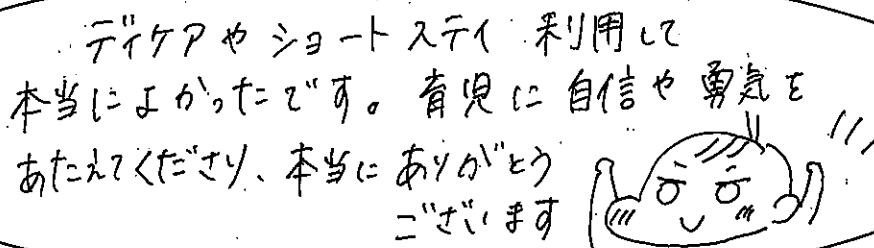 デイケアやショートステイ利用して
本当によかったです。育児に自信や勇気を
あたえてくださり、本当にありがとう
ございます